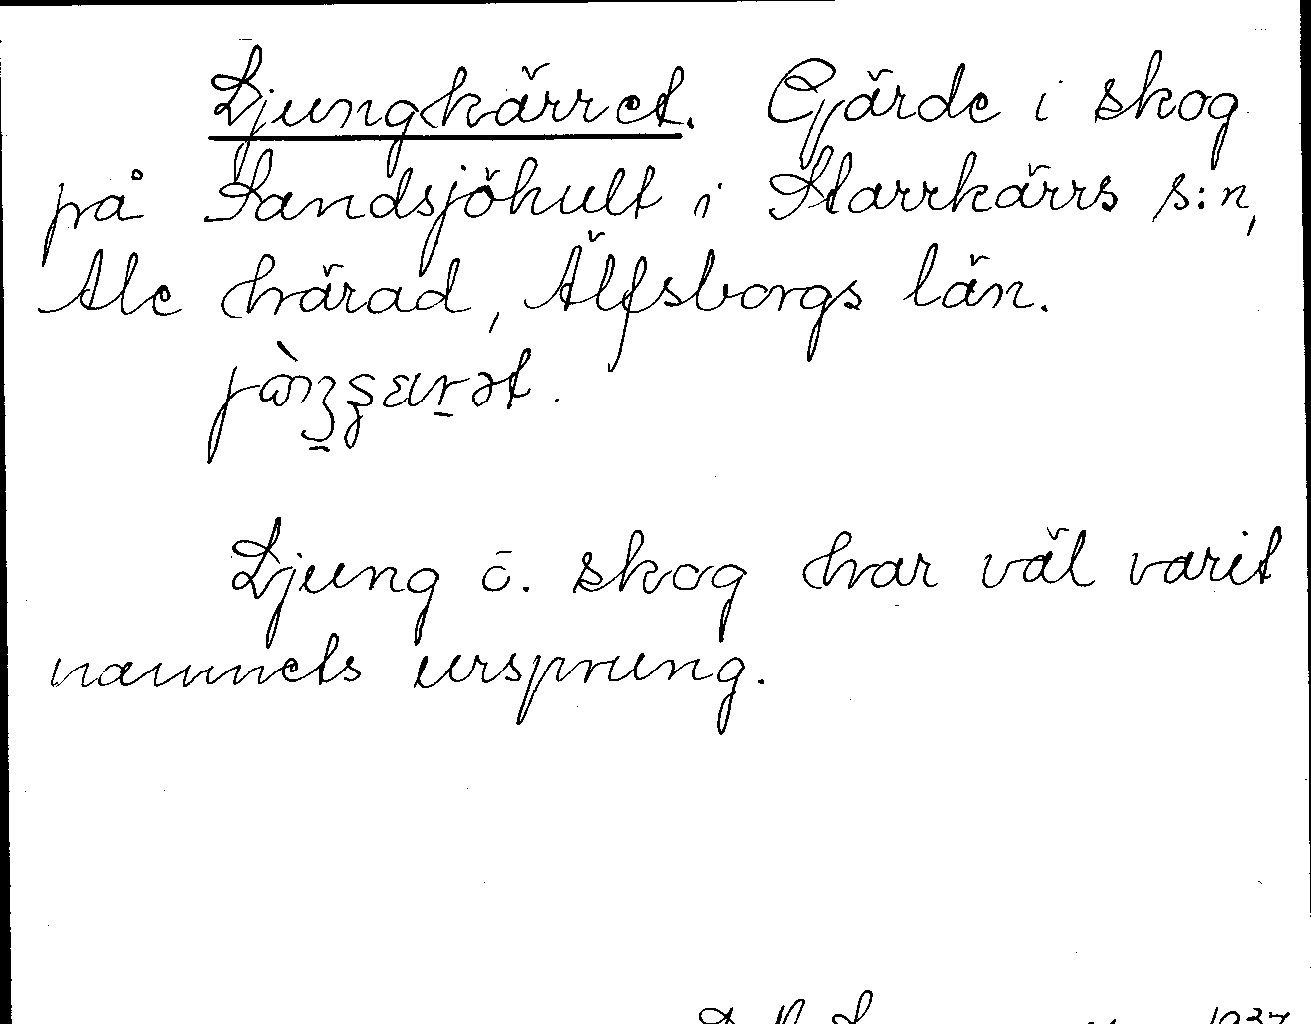 Ljungkärret. Gärde i skog
på Sandsjöhult i Starrkärrs s:n,
Ale härad, Älfsborgs län.
Ljung o. skog har väl varit
namnets ursprung.
1937